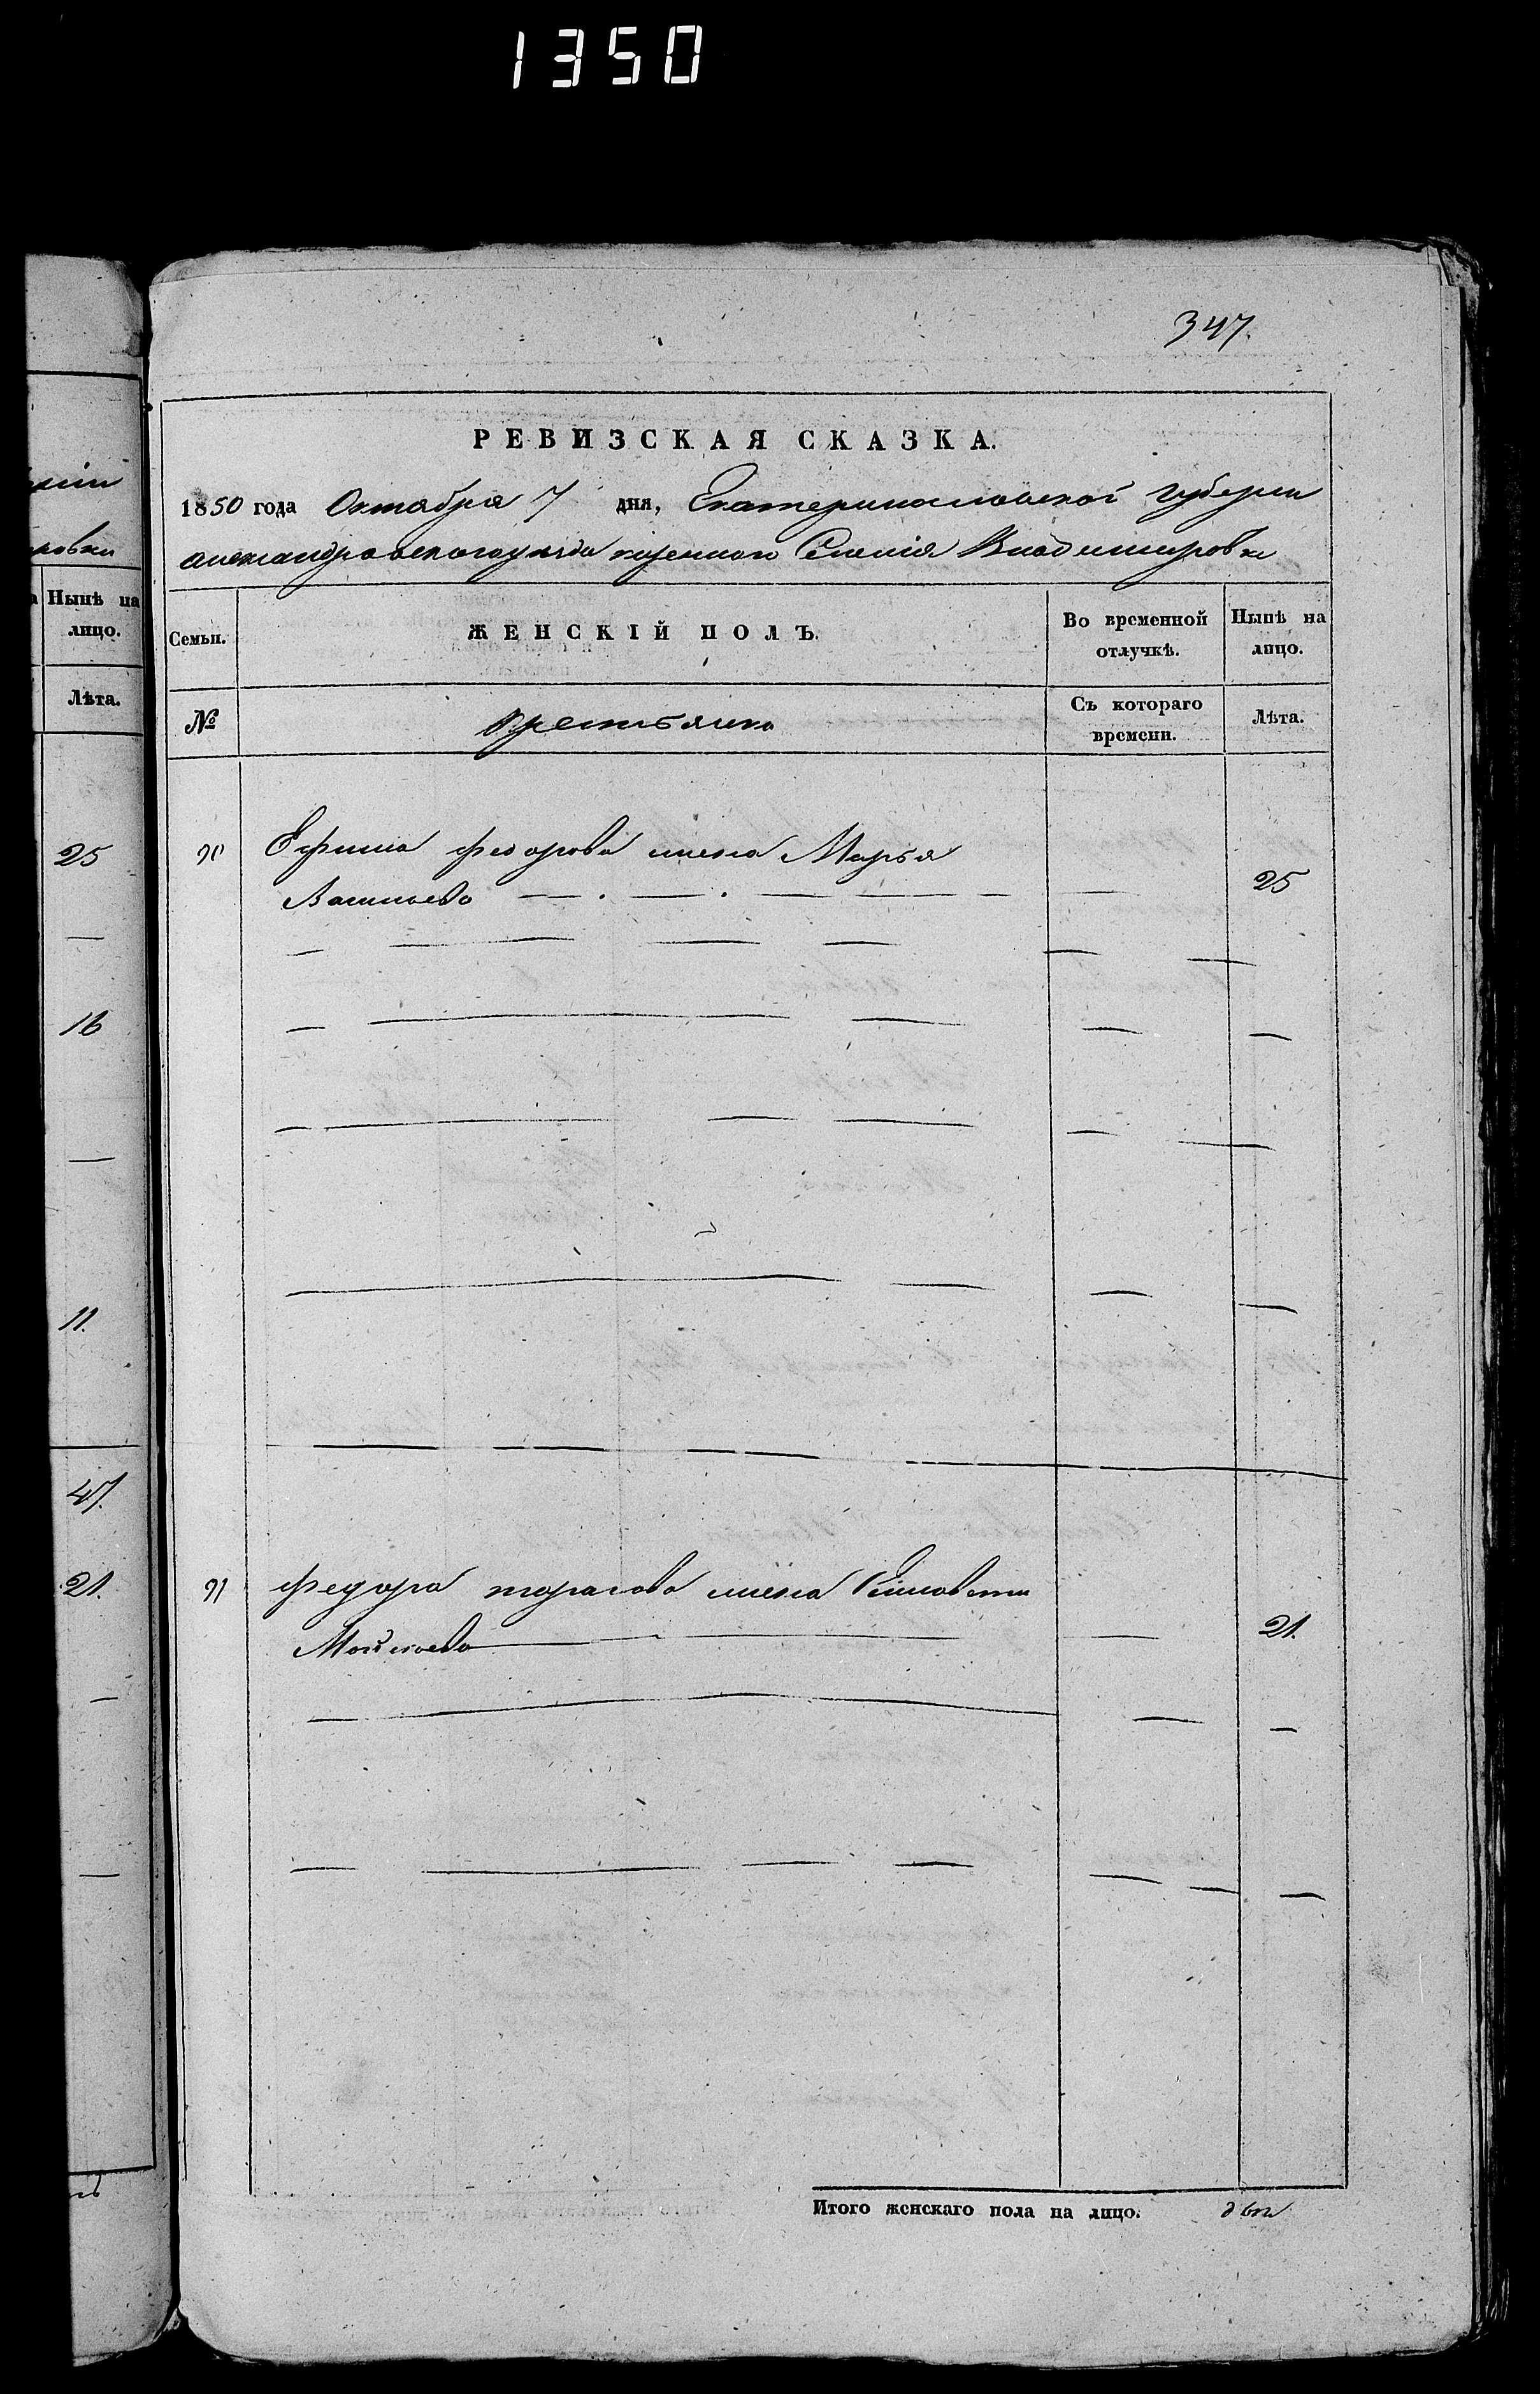 1350
347.
РЕВИЗСКАЯ СКАЗКА.
1850 года Октября 7 дня, Екатеринославской губерни
александровского уезда казенного Селения Владимировки
Семьи.
ЖЕНСКІЙ ПОЛЪ.
Во временной отлучкѣ.
Нынѣ на лицо.
№
крестьянка
Съ котораго времени.
Лѣта.
90 Ефима федорова жена Марья
Васильева 25
91 федора тарасова жена Елисавета
Мойсеева 21.
Итого женскаго пола на лицо. две
Нынѣ на
лицо.
Лѣта.
25
16
11.
47.
21.